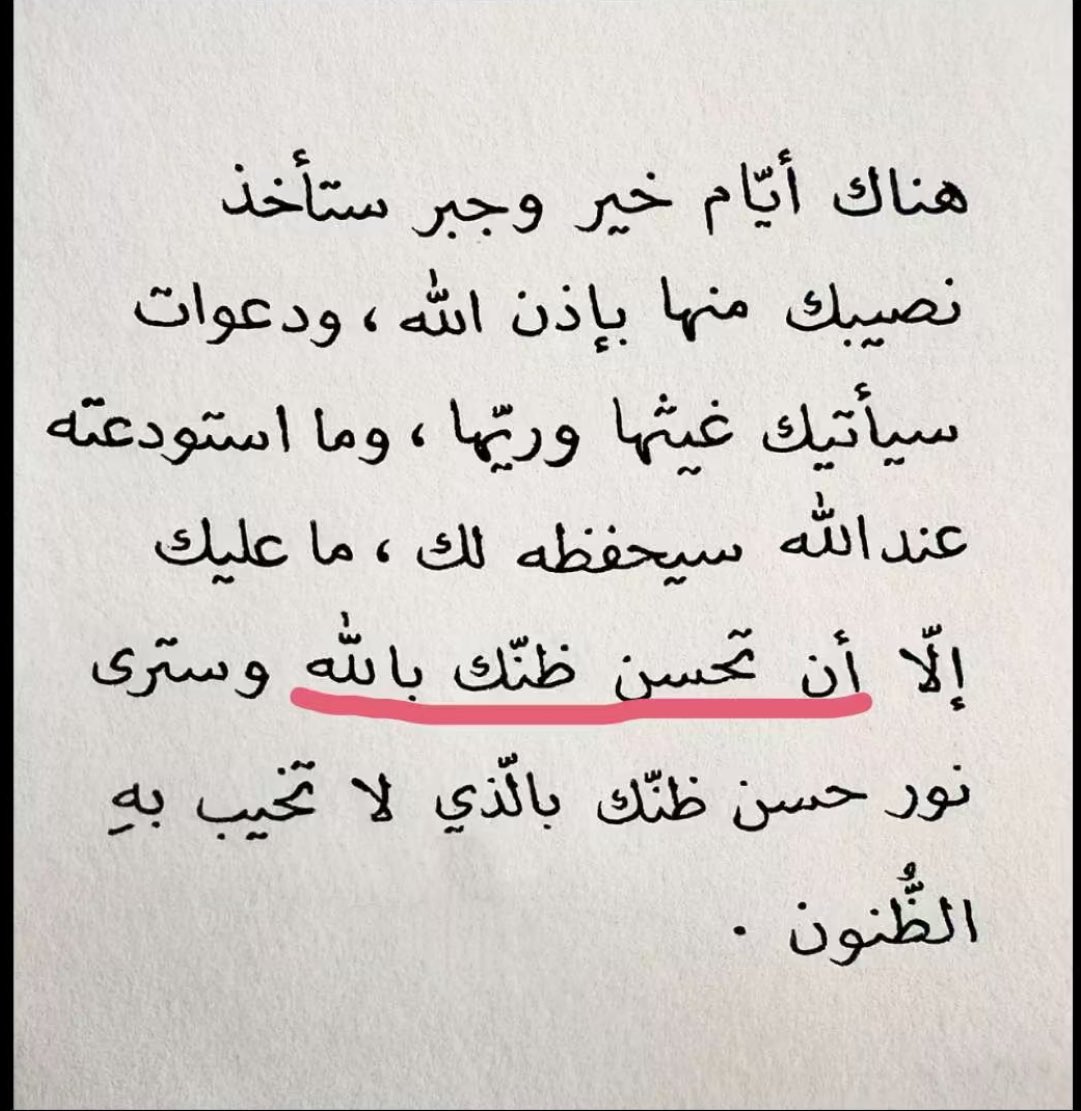 هناك أيّام خير وجبر ستأخذ
نصيبك منها بإذن الله ، ودعوات
سيأتيك غيثها وريّها ، وما استودعته
عند الله سيحفظه لك ، ما عليك
إلّا أن تحسن ظنّك بالله وسترى
نور حسن ظنّك بالّذي لا تخيب بهِ
الظُّنون .